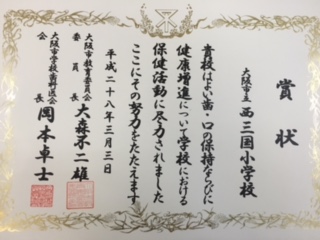 賞状
大阪市立 西三国小学校
貴校はよい歯・口の保持ならびに
健康増進について学校における
保健活動に尽力されました
ここにその努力をたたえます
平成二十八年三月三日
大阪市教育委員会
委員長 大森不二雄
大阪市学校歯科医会
会長 岡本卓士